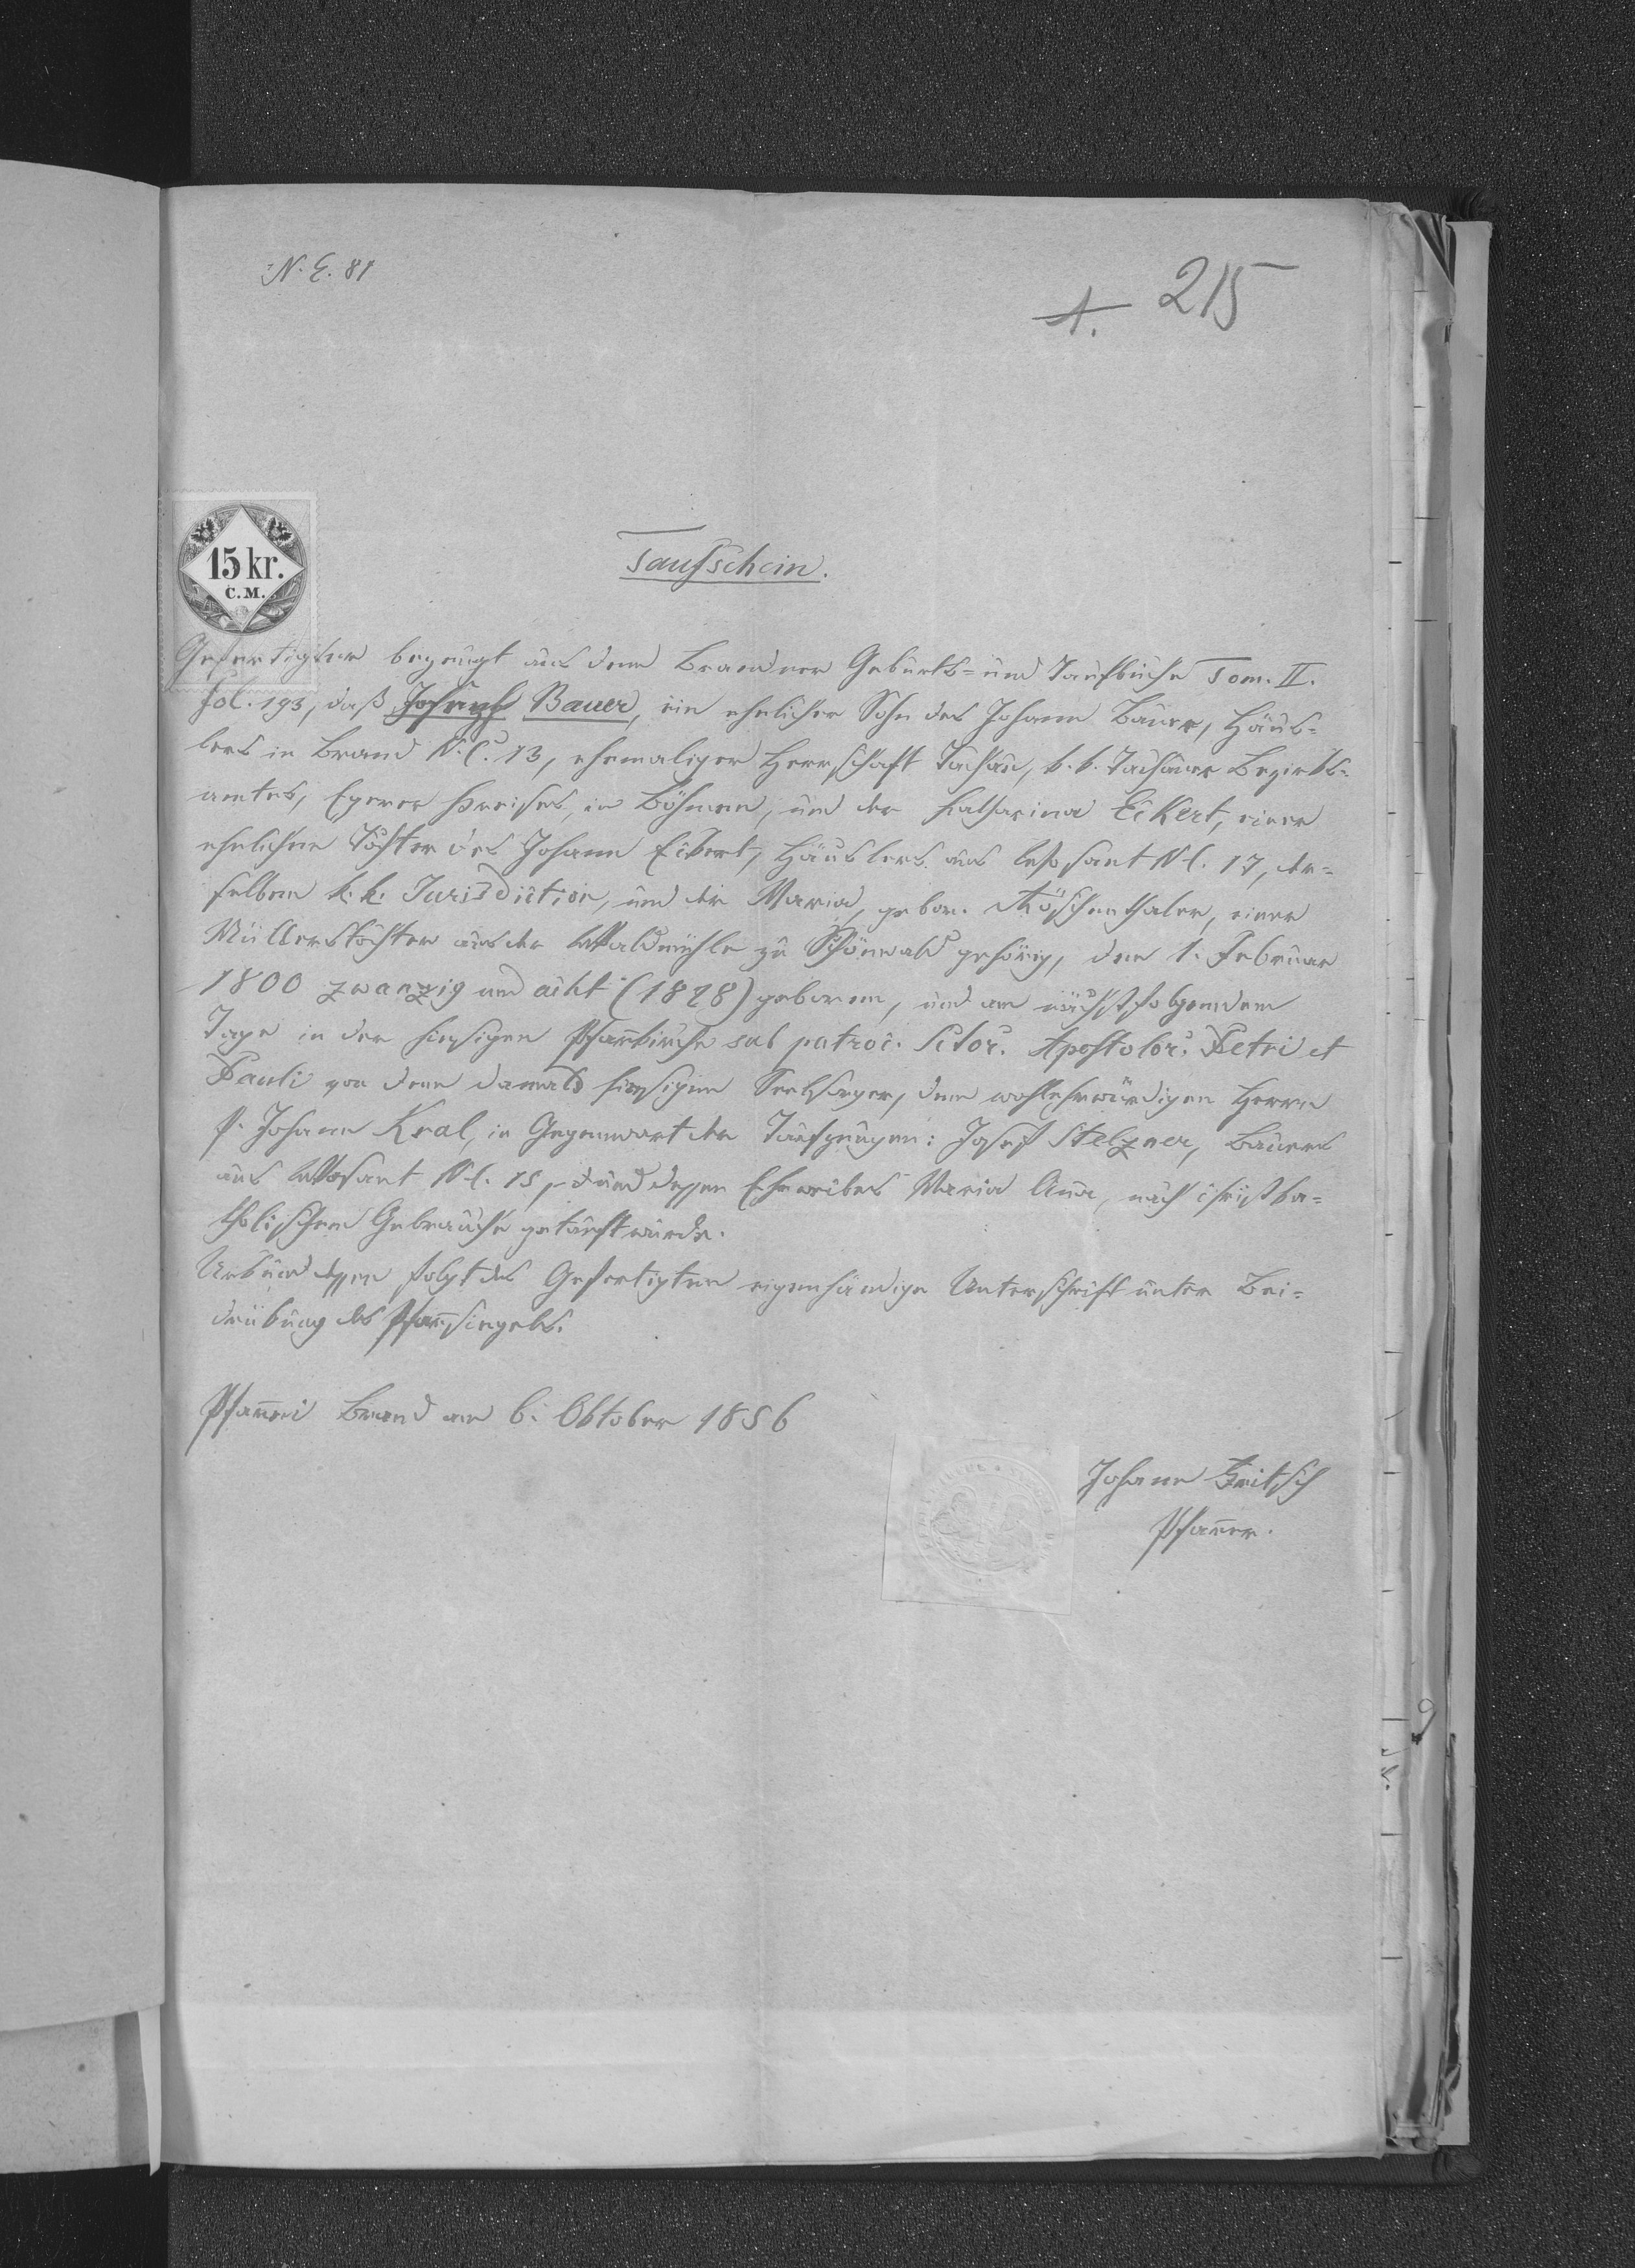 N. E. 81
A. 215
15 kr.
C.M.
Taufschein.
Gefertigter bezeugt aus dem Brandner Geburts- und Taufbuche Tom. II.
fol. 193, daß Joseph Bauer, ein ehelicher Sohn des Johann Bauer, Häus-
lers in Brand N.C. 13, ehemaliger Herrschaft Tachau, k. k. Tachauer Bezirks-
amtes, Egerer Kreises, in Böhmen, und der Katharina Eckert, einer
ehelichen Tochter des Johann Eckert, Häuslers aus N.C. 17, der-
selben k. k. Jurisdiction, und der Maria, gebor. Röschenthaler, einer
Müllerstochter aus der Waldmühle zu Schönwald gehörig, den 1. Februar
1800 zwanzig und acht (1828) geboren, und am nächstfolgendem
Tage in der hiesigen Pfarrkirche sub patroc. Sctor. Apostolor. Petri et
Pauli von dem damals hiesigen Seelsorger, dem wohlehrwürdigen Herrn
P. Johann Kral, in Gegenwart der Taufzeugen: Josef Stelzner, Bauers
aus N.C. 15, und dessen Eheweibes Maria Anna, nach christka-
tholischem Gebrauche getauft wurde.
Urkund dessen folgt des Gefertigten eigenhändige Unterschrift unter Bei-
drückung des Pfarrsiegels.
Pfarrei Brand am 6. Oktober 1856
Johann Fritsch
Pfarrer.